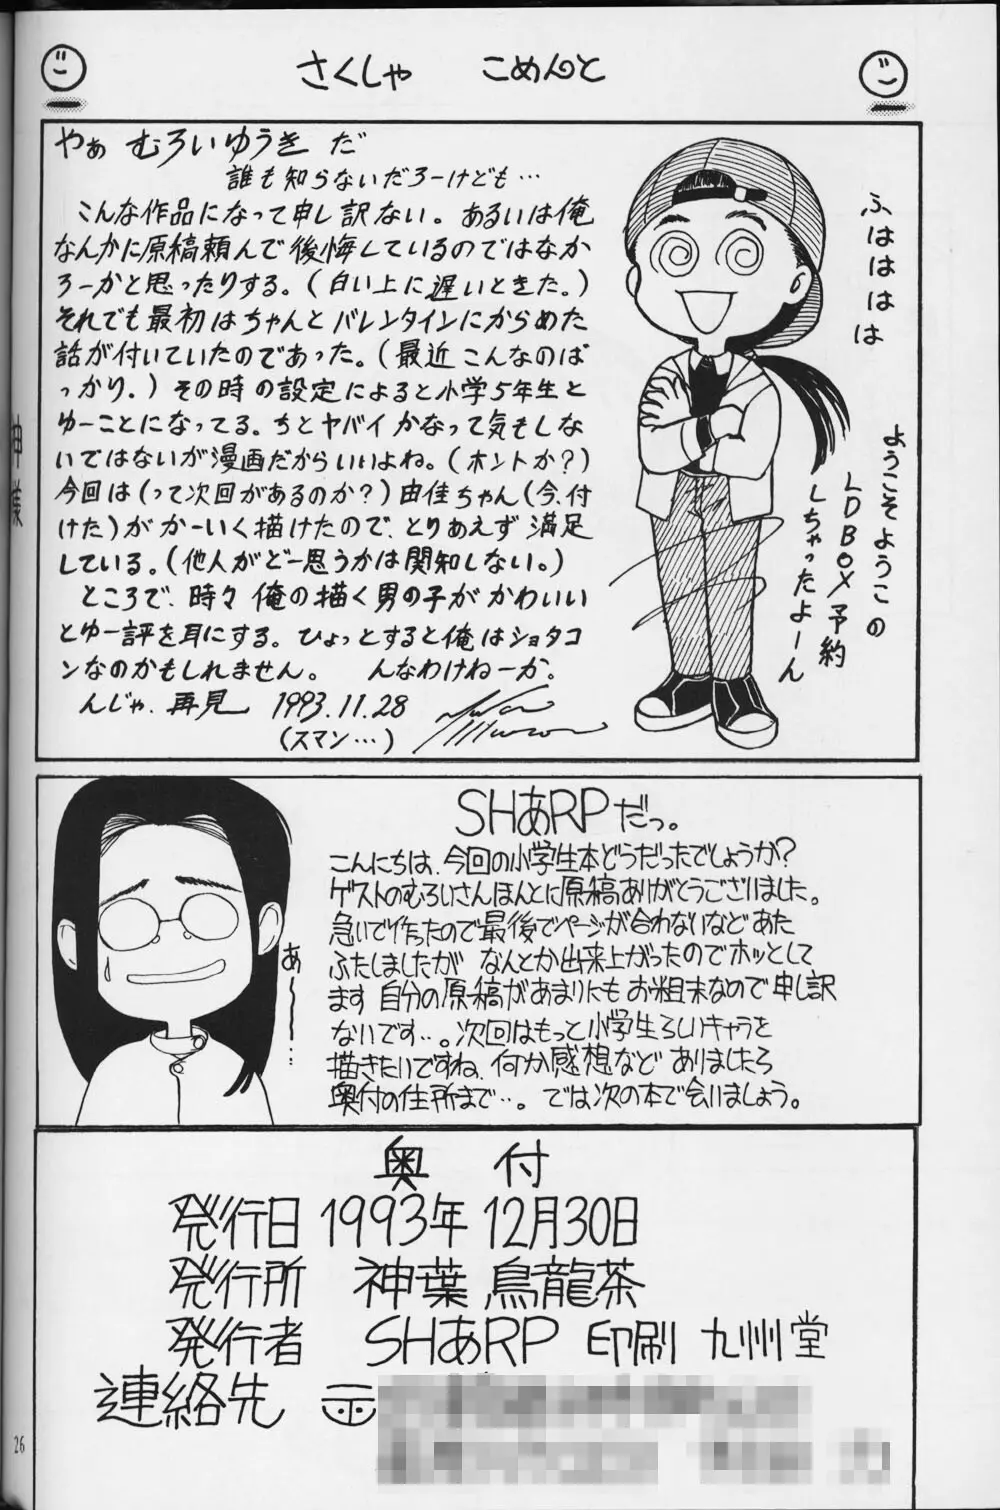 さくしゃ こめんと
やぁ むろいゆうき だ
誰も知らないだろーけども…
こんな作品になって申し訳ない。あるいは俺
なんかに原稿頼んで後悔しているのではなか
ろーかと思ったりする。(白い上に遅いときた。)
それでも最初はちゃんとバレンタインにからめた
話が付いていたのであった。(最近こんなのば
っかり.)その時の設定によると小学5年生と
ゆーことになってる。ちとヤバイかなって気もしな
いではないが漫画だからいいよね。(ホントか?)
今回は(って次回があるのか?)由佳ちゃん(今、付
けた)がかーいく描けたので、とりあえず満足
している。(他人がどー思うかは関知しない。)
ところで、時々俺の描く男の子がかわいい
とゆー評を耳にする。ひょっとすると俺はショタコ
ンなのかもしれません。 んなわけねーか.
んじゃ.再見 1993.11.28
(スマン…)
ふはははは
ようこそようこの
LDBOX予約
しちゃったよーん
SHあRPだっ。
こんにちは、今回の小学生本どうだったでしょうか?
ゲストのむろいさんほんとに原稿ありがとうございました。
急いで作ったので最後でページが合わないなどあた
ふたしましたが なんとか出来上がったのでホッとして
ます 自分の原稿があまりにもお粗末なので申し訳
ないです…。次回はもっと小学生らしいキャラを
描きたいですね、何か感想など ありましたら
奥付の住所まで…。では次の本で会いましょう。
あ〜〜…
奥付
発行日 1993年 12月30日
発行所 神葉 烏龍茶
発行者 SHあRP 印刷 九州堂
連絡先 〒
26